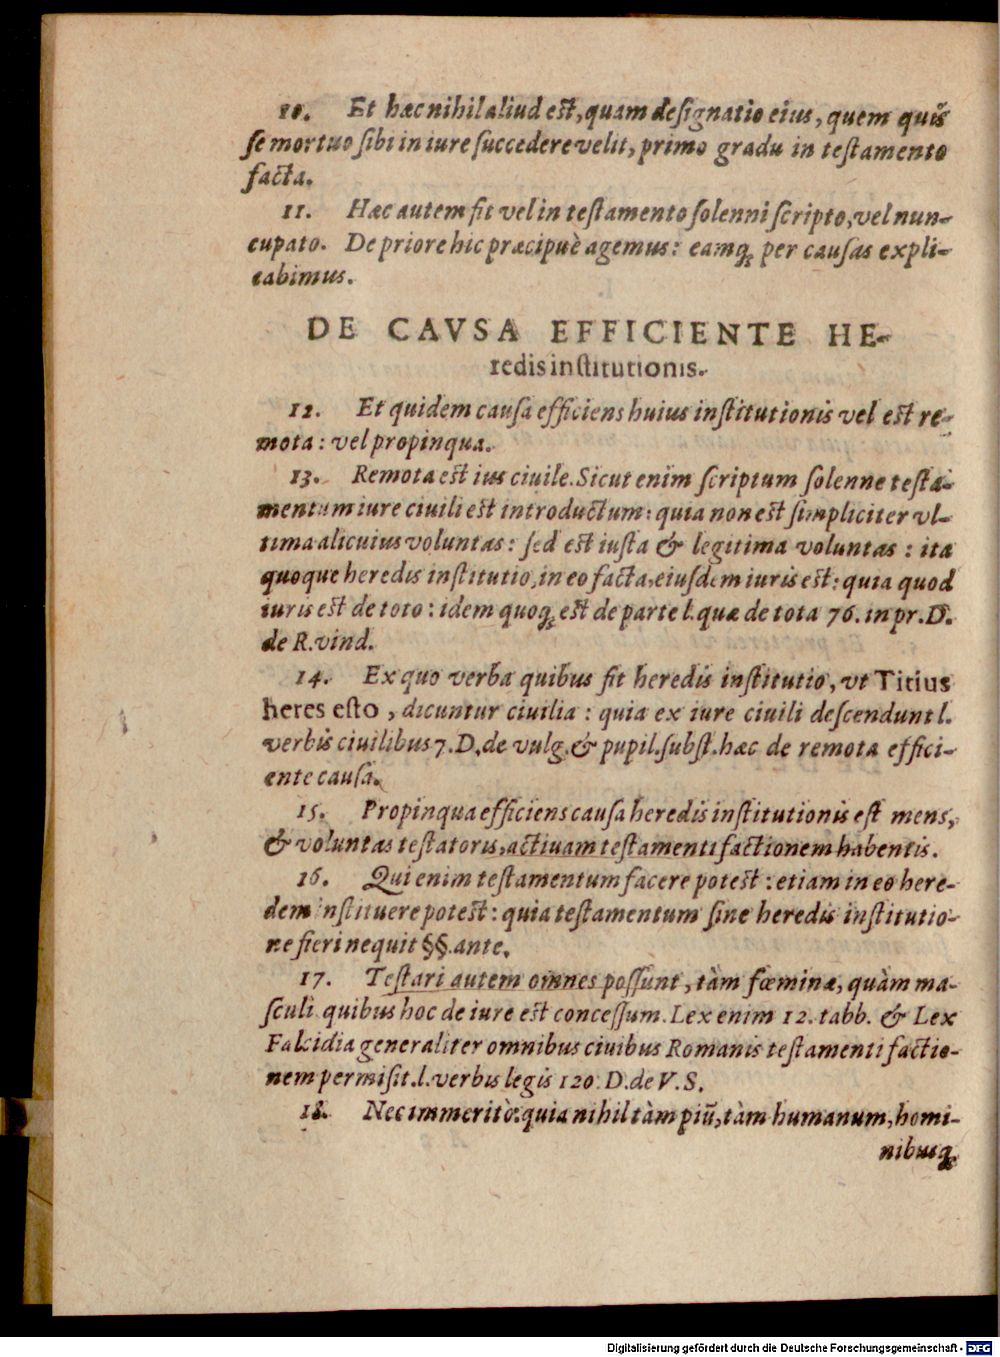 10. Et hæc nihil aliud est, quam designatio eius, quem quis
se mortuo sibi in iure succedere velit, primo gradu in testamento
facta.
11. Hæc autem fit vel in testamento solenni scripto, vel nun-
cupato. De priore hic præcipuè agemus: eamq; per causas expli-
cabimus.
DE CAVSA EFFICIENTE HE-
redis institutionis.
12. Et quidem causa efficiens huius institutionis vel est re-
mota: vel propinqua.
13. Remota est ius ciuile. Sicut enim scriptum solenne testa-
mentum iure ciuili est introductum: quia non est simpliciter vl-
tima alicuius voluntas: sed est iusta & legitima voluntas: ita
quoque heredis institutio, in eo facta, eiusdem iuris est: quia quod
iuris est de toto: idem quoq; est de parte l. quæ de tota 76. in pr. D.
de R. vind.
14. Ex quo verba quibus fit heredis institutio, vt Titius
heres esto, dicuntur ciuilia: quia ex iure ciuili descendunt l.
verbis ciuilibus 7. D. de vulg. & pupil. subst. hæc de remota effici-
ente causa.
15. Propinqua efficiens causa heredis institutionis est mens,
& voluntas testatoris, actiuam testamenti factionem habentis.
16. Qui enim testamentum facere potest: etiam in eo here-
dem instituere potest: quia testamentum sine heredis institutio-
ne fieri nequit §§. ante.
17. Testari autem omnes possunt, tàm fœminæ, quàm ma-
sculi quibus hoc de iure est concessum. Lex enim 12. tabb. & Lex
Falcidia generaliter omnibus ciuibus Romanis testamenti factio-
nem permisit. l. verbis legis 120. D. de V. S.
18. Nec immeritò: quia nihil tàm piũ, tàm humanum, homi-
nibusq;
Digitalisierung gefördert durch die Deutsche Forschungsgemeinschaft - DFG